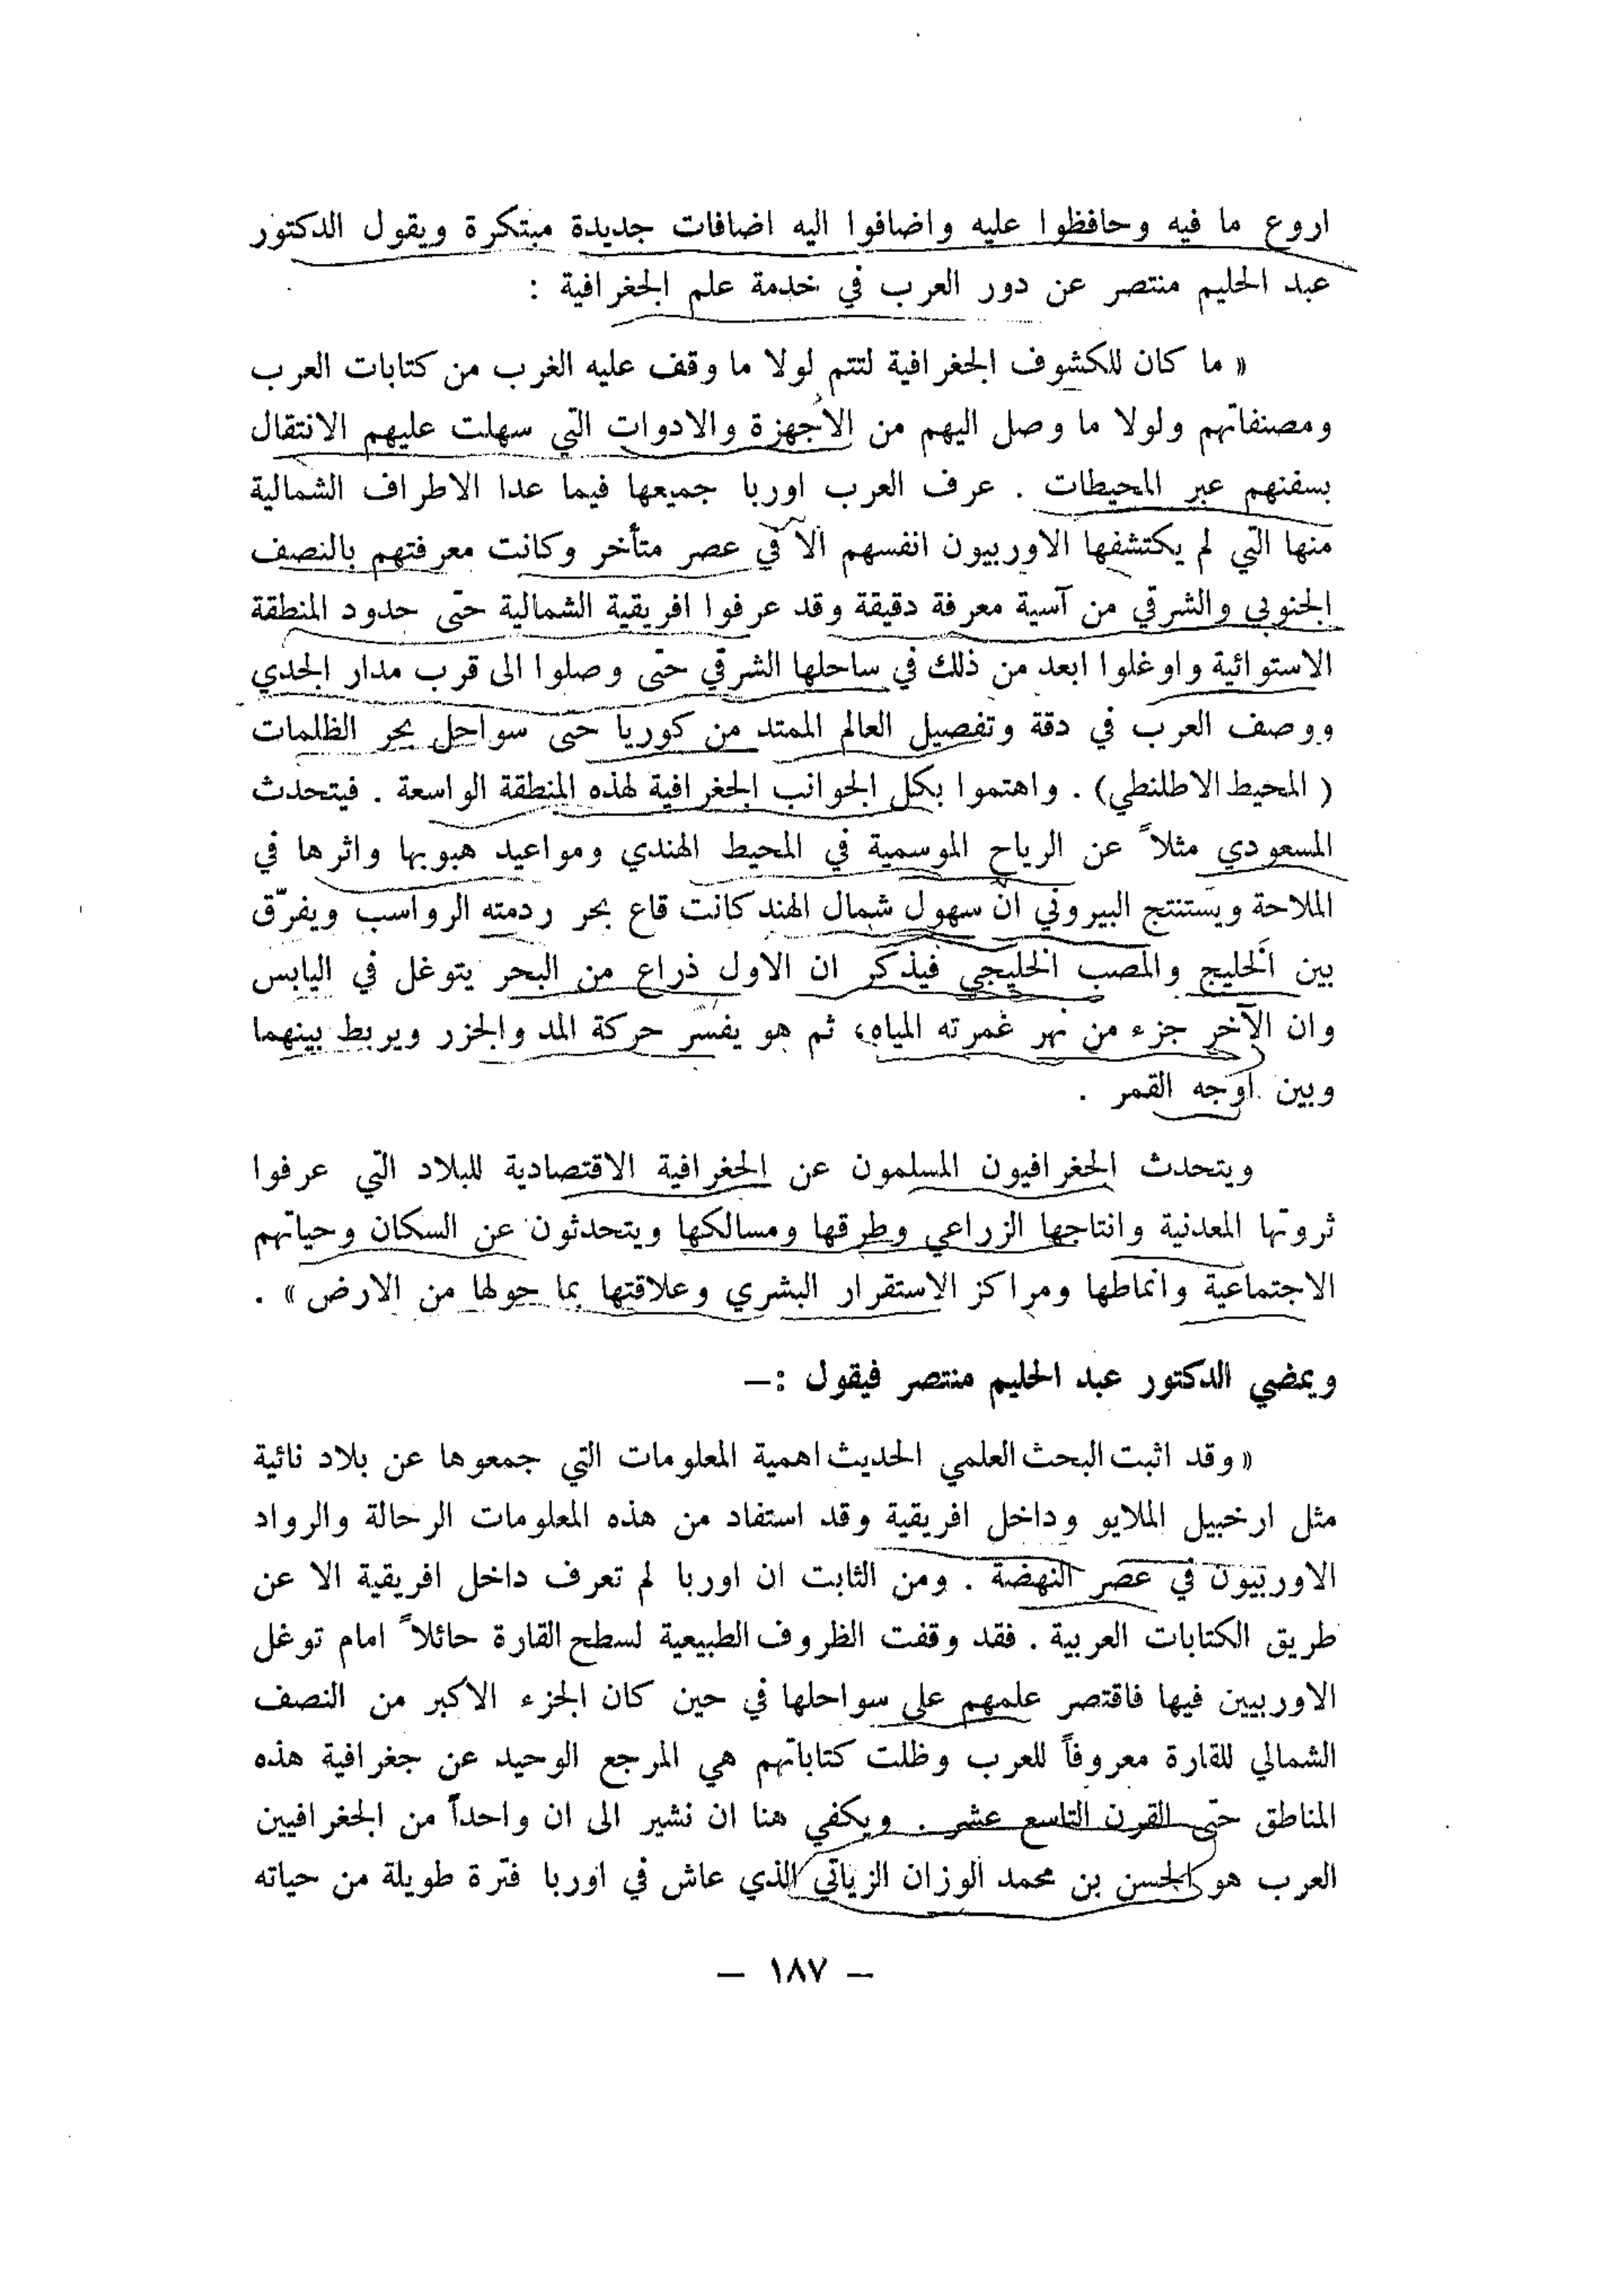 اروع ما فيه وحافظوا عليه واضافوا اليه اضافات جديدة مبتكرة ويقول الدكتور
عبد الحليم منتصر عن دور العرب في خدمة علم الجغرافية :
« ما كان للكشوف الجغرافية لتتم لولا ما وقف عليه الغرب من كتابات العرب
ومصنفاتهم ولولا ما وصل اليهم من الاجهزة والادوات التي سهلت عليهم الانتقال
بسفنهم عبر المحيطات . عرف العرب اوربا جميعها فيما عدا الاطراف الشمالية
منها التي لم يكتشفها الاوربيون انفسهم الا في عصر متأخر وكانت معرفتهم بالنصف
الجنوبي والشرقي من آسية معرفة دقيقة وقد عرفوا افريقية الشمالية حتى حدود المنطقة
الاستوائية واوغلوا ابعد من ذلك في ساحلها الشرقي حتى وصلوا الى قرب مدار الجدي
ووصف العرب في دقة وتفصيل العالم الممتد من كوريا حتى سواحل بحر الظلمات
( المحيط الاطلنطي) . واهتموا بكل الجوانب الجغرافية لهذه المنطقة الواسعة . فيتحدث
المسعودي مثلاً عن الرياح الموسمية في المحيط الهندي ومواعيد هبوبها واثرها في
الملاحة ويستنتج البيروني ان سهول شمال الهند كانت قاع بحر ردمته الرواسب ويفرّق
بين الخليج والمصب الخليجي فيذكر ان الاول ذراع من البحر يتوغل في اليابس
وان الآخر جزء من نهر غمرته المياه، ثم هو يفسر حركة المد والجزر ويربط بينهما
وبين اوجه القمر .
ويتحدث الجغرافيون المسلمون عن الجغرافية الاقتصادية للبلاد التي عرفوا
ثروتها المعدنية وانتاجها الزراعي وطرقها ومسالكها ويتحدثون عن السكان وحياتهم
الاجتماعية وانماطها ومراكز الاستقرار البشري وعلاقتها بما حولها من الارض » .
ويمضي الدكتور عبد الحليم منتصر فيقول :—
« وقد اثبت البحث العلمي الحديث اهمية المعلومات التي جمعوها عن بلاد نائية
مثل ارخبيل الملايو وداخل افريقية وقد استفاد من هذه المعلومات الرحالة والرواد
الاوربيون في عصر النهضة . ومن الثابت ان اوربا لم تعرف داخل افريقية الا عن
طريق الكتابات العربية . فقد وقفت الظروف الطبيعية لسطح القارة حائلاً امام توغل
الاوربيين فيها فاقتصر علمهم على سواحلها في حين كان الجزء الاكبر من النصف
الشمالي للقارة معروفاً للعرب وظلت كتاباتهم هي المرجع الوحيد عن جغرافية هذه
المناطق حتى القرن التاسع عشر . ويكفي هنا ان نشير الى ان واحداً من الجغرافيين
العرب هو الحسن بن محمد الوزان الزياتي الذي عاش في اوربا فترة طويلة من حياته
— ١٨٧ —